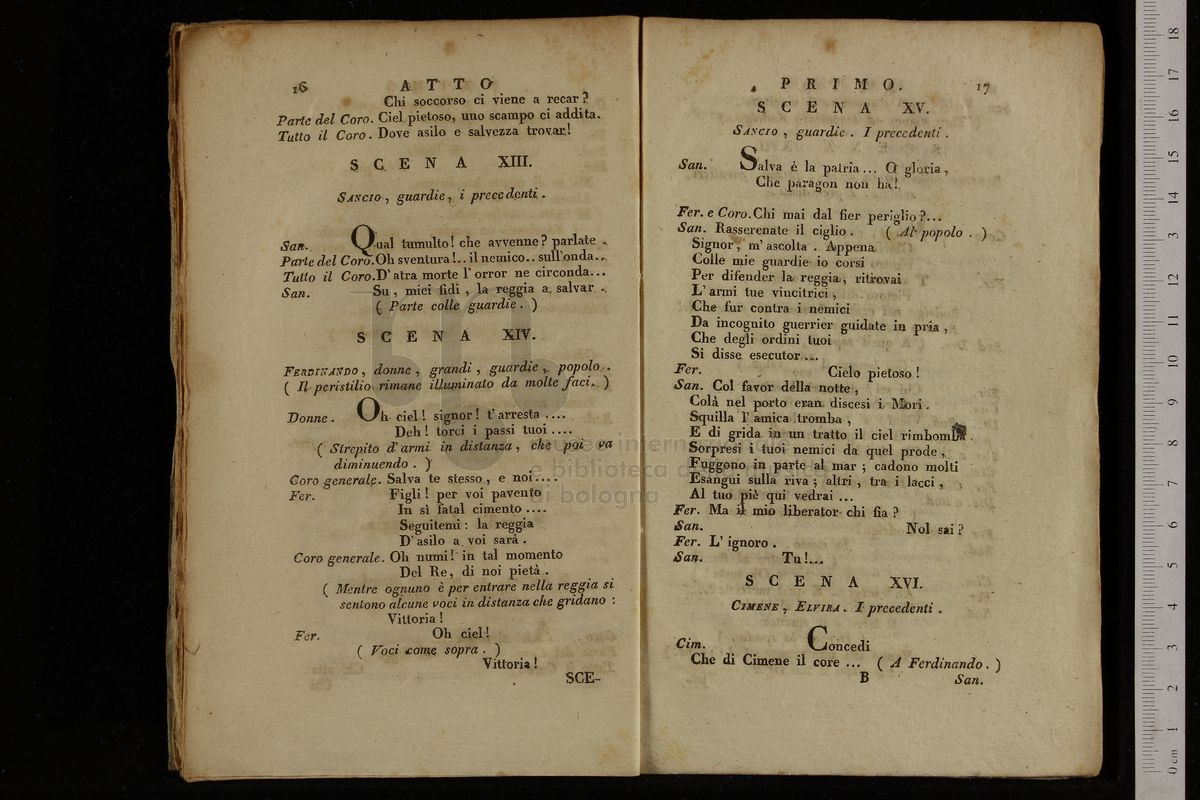 16 ATTO
Chi soccorso ci viene a recar?
Parte del Coro. Ciel pietoso, uno scampo ci addita.
Tutto il Coro. Dove asilo e salvezza trovar!
SCENA XIII.
SANCIO, guardie, i precedenti.
San. Qual tumulto! che avvenne? parlate.
Parte del Coro. Oh sventura!.. il nemico.. sull'onda..
Tutto il Coro. D'atra morte l'orror ne circonda...
San. Su, miei fidi, la reggia a salvar.
( Parte colle guardie. )
SCENA XIV.
FERDINANDO, donne, grandi, guardie, popolo.
( Il peristilio rimane illuminato da molte faci. )
Donne. Oh ciel! signor! t'arresta....
Deh! torci i passi tuoi....
( Strepito d'armi in distanza, che poi va
diminuendo. )
Coro generale. Salva te stesso, e noi....
Fer. Figli! per voi pavento
In sì fatal cimento....
Seguitemi: la reggia
D'asilo a voi sarà.
Coro generale. Oh numi! in tal momento
Del Re, di noi pietà.
( Mentre ognuno è per entrare nella reggia si
sentono alcune voci in distanza che gridano:
Vittoria!
Fer. Oh ciel!
( Voci come sopra. )
Vittoria!
SCE-
PRIMO. 17
SCENA XV.
SANCIO, guardie. I precedenti.
San. Salva è la patria... O gloria,
Che paragon non ha!
Fer. e Coro. Chi mai dal fier periglio?...
San. Rasserenate il ciglio. ( Al popolo. )
Signor, m'ascolta. Appena
Colle mie guardie io corsi
Per difender la reggia, ritrovai
L'armi tue vincitrici,
Che fur contra i nemici
Da incognito guerrier guidate in pria,
Che degli ordini tuoi
Si disse esecutor....
Fer. Cielo pietoso!
San. Col favor della notte,
Colà nel porto eran discesi i Mori.
Squilla l'amica tromba,
E di grida in un tratto il ciel rimbomba.
Sorpresi i tuoi nemici da quel prode,
Fuggono in parte al mar; cadono molti
Esangui sulla riva; altri, tra i lacci,
Al tuo piè qui vedrai...
Fer. Ma il mio liberator chi fia?
San. Nol sai?
Fer. L'ignoro.
San. Tu!....
SCENA XVI.
CIMENE, ELVIRA. I precedenti.
Cim. Concedi
Che di Cimene il core... ( A Ferdinando. )
B San.
museo internazionale
e biblioteca della musica
di bologna
0 cm 1 2 3 4 5 6 7 8 9 10 11 12 13 14 15 16 17 18